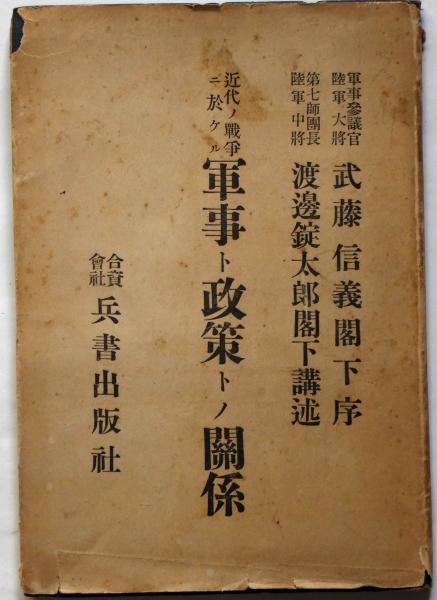 軍事參議官
陸軍大將
武藤信義閣下序
第七師團長
陸軍中將
渡邊錠太郎閣下講述
近代ノ戰爭
ニ於ケル
軍事ト政策トノ關係
合資
會社
兵書出版社